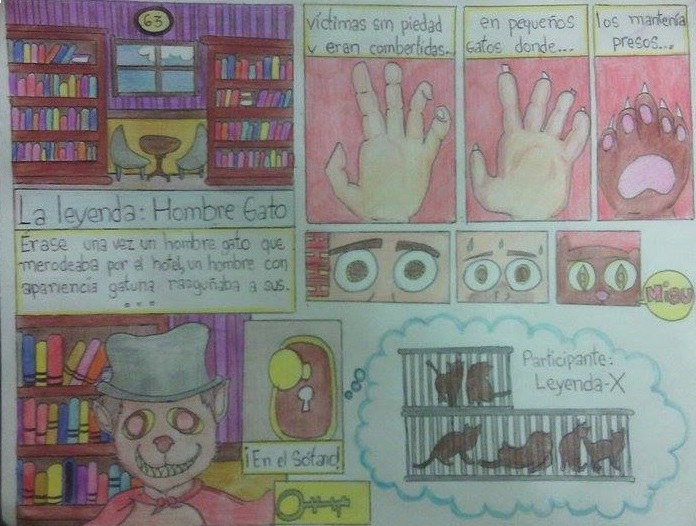 63
La leyenda: Hombre Gato
Érase una vez un hombre gato que
merodeaba por el hotel, un hombre con
apariencia gatuna rasguñaba a sus.
...
víctimas sin piedad
y eran combertidas...
en pequeños
Gatos donde...
los mantenía
presos...
Miau
¡En el Sótano!
Participante:
Leyenda-X